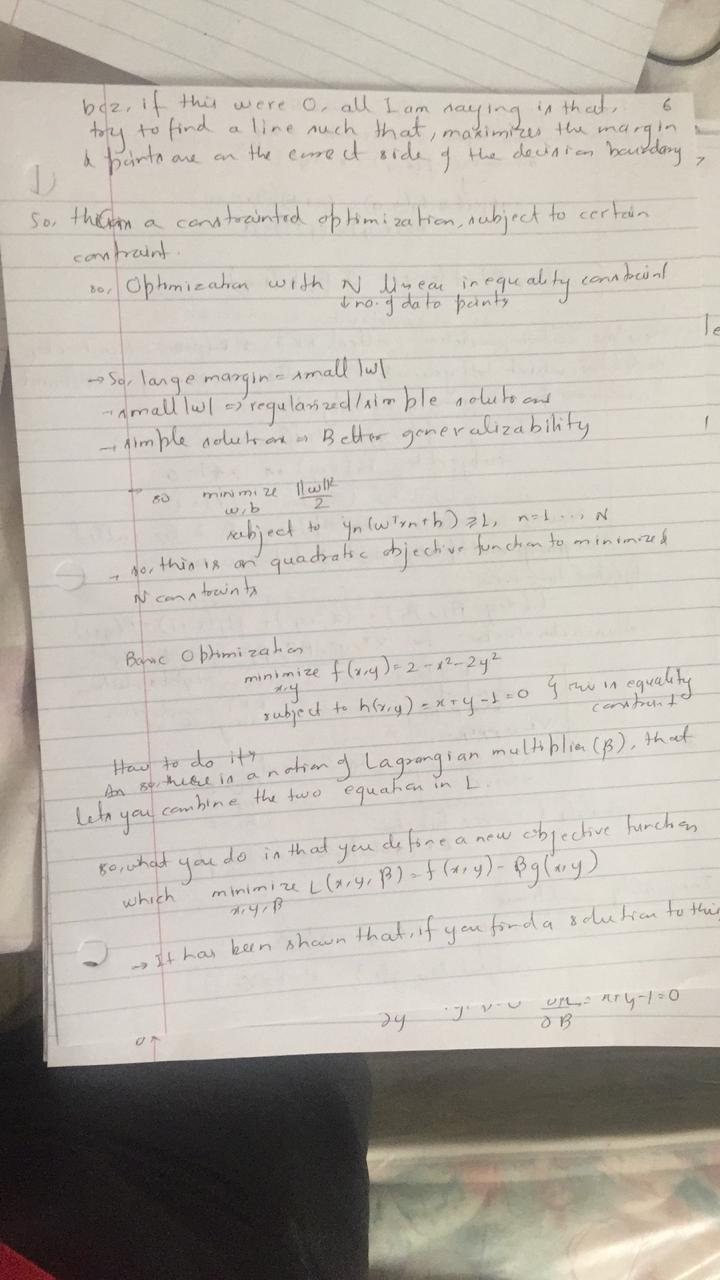 bcz, if this were 0, all I am saying is that, 6
try to find a line such that, maximizes the margin
& points are on the correct side of the decision boundary,
So, a constrainted optimization, subject to certain
contraint.
so, Optimization with N linear inequality constraint
↓ no. of data points
le
→ So, large margin = small |w|
→ small |w| => regularized/simble solutions
→ simble solution => Better generalizability
→ so minimize ||w||²/2
w,b
subject to yn(wᵀxn+b) ≥ 1, n=1 ... N
→ so, this is an quadratic objective function to minimized
N constraints
Basic Optimization
minimize f(x,y) = 2-x²-2y²
x,y
subject to h(x,y) = x+y-1=0 } in equality
constraint
How to do it?
so, there is a notion of Lagrangian multiplier (β), that
lets you combine the two equation in L.
so, what you do is that you define a new objective function
which minimize L(x,y,β) = f(x,y) - βg(x,y)
x,y,β
→ It has been shown that, if you find a solution to this
∂y ∂β = x+y-1=0